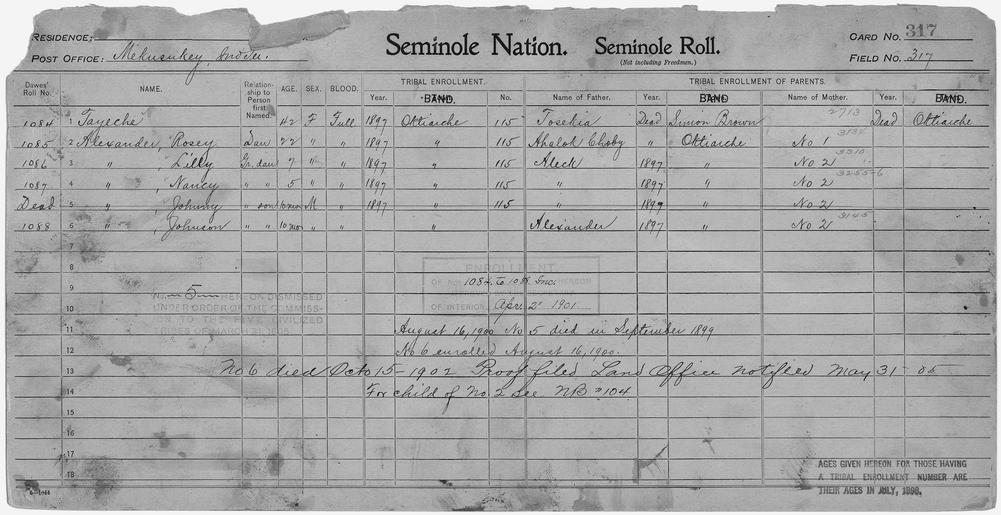 RESIDENCE;
POST OFFICE: Mekusukey, Ind Ter.
Seminole Nation. Seminole Roll.
(Not including Freedmen.)
CARD NO. 317
FIELD NO. 317
Dawes' Roll No. NAME. Relationship to Person first Named. AGE. SEX. BLOOD. TRIBAL ENROLLMENT. TRIBAL ENROLLMENT OF PARENTS.
Year. BAND. No. Name of Father. Year. BAND. Name of Mother. Year. BAND.
2713
1084 1 Tayeche 42 F Full 1897 Ottiarche 115 Tosekia Dead Simon Brown Dead Ottiarche
1085 2 Alexander, Rosey Dau 22 " " 1897 " 115 Ahalok Choby " Ottiarche No 1
3310
1086 3 " , Lilly Gr. dau 7 " " 1897 " 115 Aleck 1897 " No 2
3255-6
1087 4 " , Nancy " " 5 " " 1897 " 115 " 1897 " No 2
Dead 5 " , Johnny " son 10 mos M " 1897 " 115 " 1899 " No 2
3145
1088 6 " , Johnson " " 10 mos " " Alexander 1897 " No 2
7
8
ENROLLMENT
9 OF NOS. 1084 to 1088 Inc. HEREON
No. 5 HEREON DISMISSED
UNDER ORDER OF THE COMMISSION TO THE FIVE CIVILIZED
TRIBES OF MARCH 31, 1905.
10 OF INTERIOR Apr. 2 1901
11 August 16, 1900 No 5 died in September 1899
12 No 6 enrolled August 16, 1900.
13 No 6 died Octo 15-1902 Proof filed Land Office notified May 31-05
14 For child of No. 2 see NB #104
15
16
17
18
AGES GIVEN HEREON FOR THOSE HAVING
A TRIBAL ENROLLMENT NUMBER ARE
THEIR AGES IN JULY, 1898.
6-1044